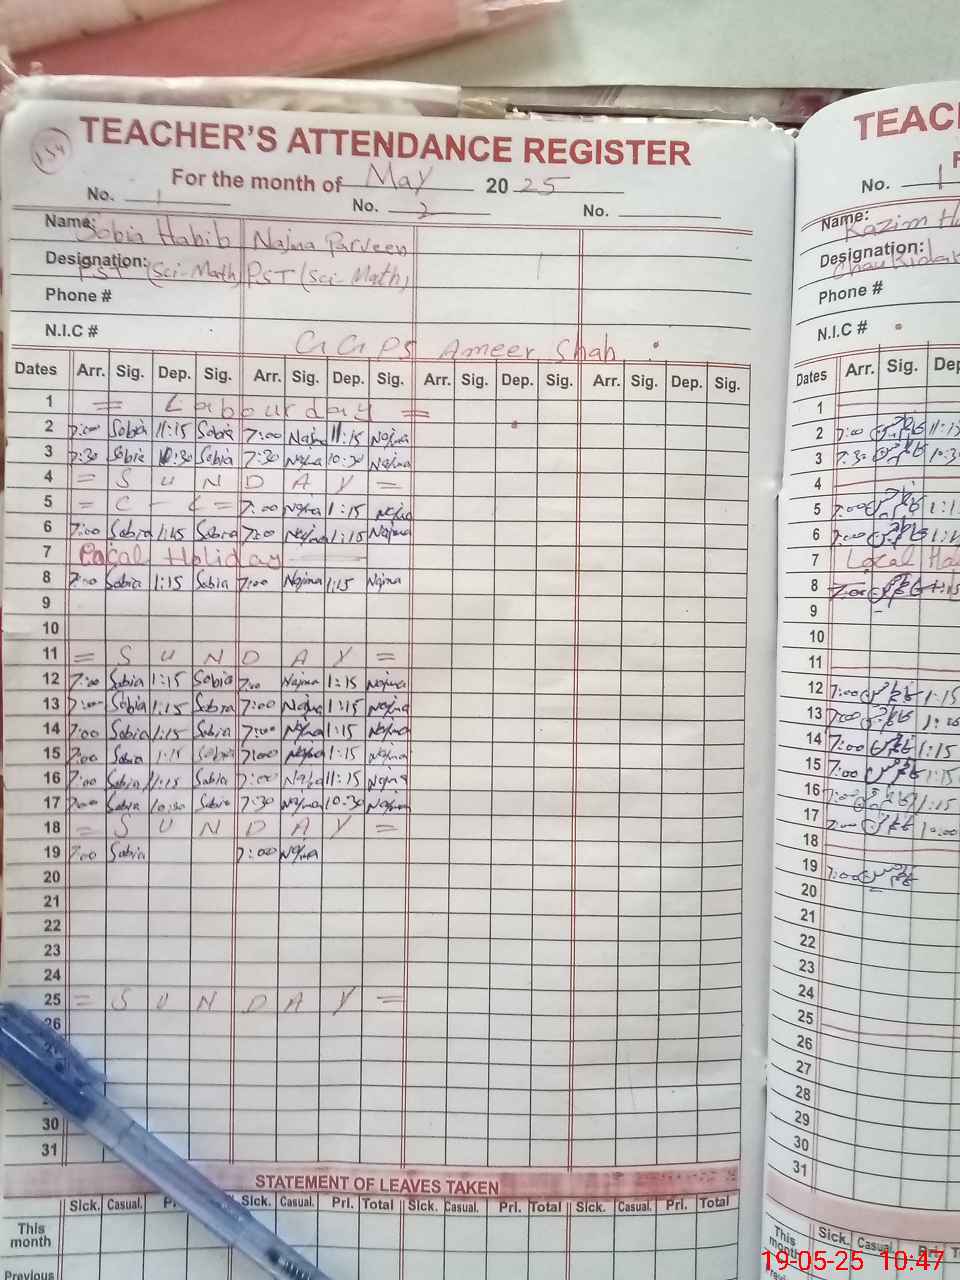 154
TEACHER'S ATTENDANCE REGISTER
For the month of May 2025
No. 1 No. 2 No.
Name: Sobia Habib Najma Parveen
Designation: PST (Sci-Math) PST (Sci-Math)
Phone #
N.I.C #
GGPS Ameer Shah.
Dates Arr. Sig. Dep. Sig. Arr. Sig. Dep. Sig. Arr. Sig. Dep. Sig. Arr. Sig. Dep. Sig.
1 = Labour day =
2 7:00 Sobia 11:15 Sobia 7:00 Najma 11:15 Najma
3 7:30 Sobia 10:30 Sobia 7:30 Najma 10:30 Najma
4 = S U N D A Y =
5 = C - L = 7:00 Najma 1:15 Najma
6 7:00 Sobia 1:15 Sobia 7:00 Najma 1:15 Najma
7 Local Holiday
8 7:00 Sobia 1:15 Sobia 7:00 Najma 1:15 Najma
9
10
11 = S U N D A Y =
12 7:00 Sobia 1:15 Sobia 7:00 Najma 1:15 Najma
13 7:00 Sobia 1:15 Sobia 7:00 Najma 1:15 Najma
14 7:00 Sobia 1:15 Sobia 7:00 Najma 1:15 Najma
15 7:00 Sobia 1:15 Sobia 7:00 Najma 1:15 Najma
16 7:00 Sobia 11:15 Sobia 7:00 Najma 11:15 Najma
17 7:00 Sobia 10:30 Sobia 7:30 Najma 10:30 Najma
18 = S U N D A Y =
19 7:00 Sobia 7:00 Najma
20
21
22
23
24
25 = S U N D A Y =
26
30
31
STATEMENT OF LEAVES TAKEN
Sick. Casual. Sick. Casual. Pri. Total Sick. Casual. Pri. Total Sick. Casual. Pri. Total
This month
Previous
TEAC
No. 1
Name: Kazim H
Designation:
Phone #
N.I.C #
Dates Arr. Sig. Dep
1
2 7:00 11:15
3 7:30 10:3
4
5 7:00 1:1
6 7:00 1:1
7 Local Hol
8 7:00 1:15
9
10
11
12 7:00 1:15
13 7:00
14 7:00 1:15
15 7:00 1:15
16 7:00 11:15
17 7:00 10:00
18
19 7:00
20
21
22
23
24
25
26
27
28
29
30
31
Sick. Casual. Pri. T
This month
Previous
19-05-25 10:47